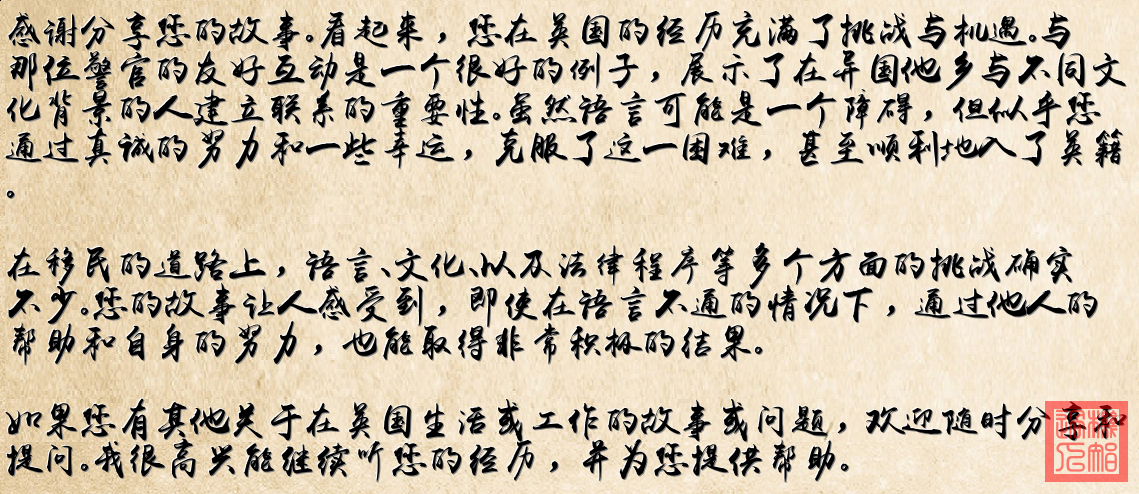 感谢分享您的故事。看起来，您在英国的经历充满了挑战与机遇。与
那位警官的友好互动是一个很好的例子，展示了在异国他乡与不同文
化背景的人建立联系的重要性。虽然语言可能是一个障碍，但似乎您
通过真诚的努力和一些幸运，克服了这一困难，甚至顺利地入了英籍
。
在移民的道路上，语言、文化、以及法律程序等多个方面的挑战确实
不少。您的故事让人感受到，即使在语言不通的情况下，通过他人的
帮助和自身的努力，也能取得非常积极的结果。
如果您有其他关于在英国生活或工作的故事或问题，欢迎随时分享和
提问。我很高兴能继续听您的经历，并为您提供帮助。